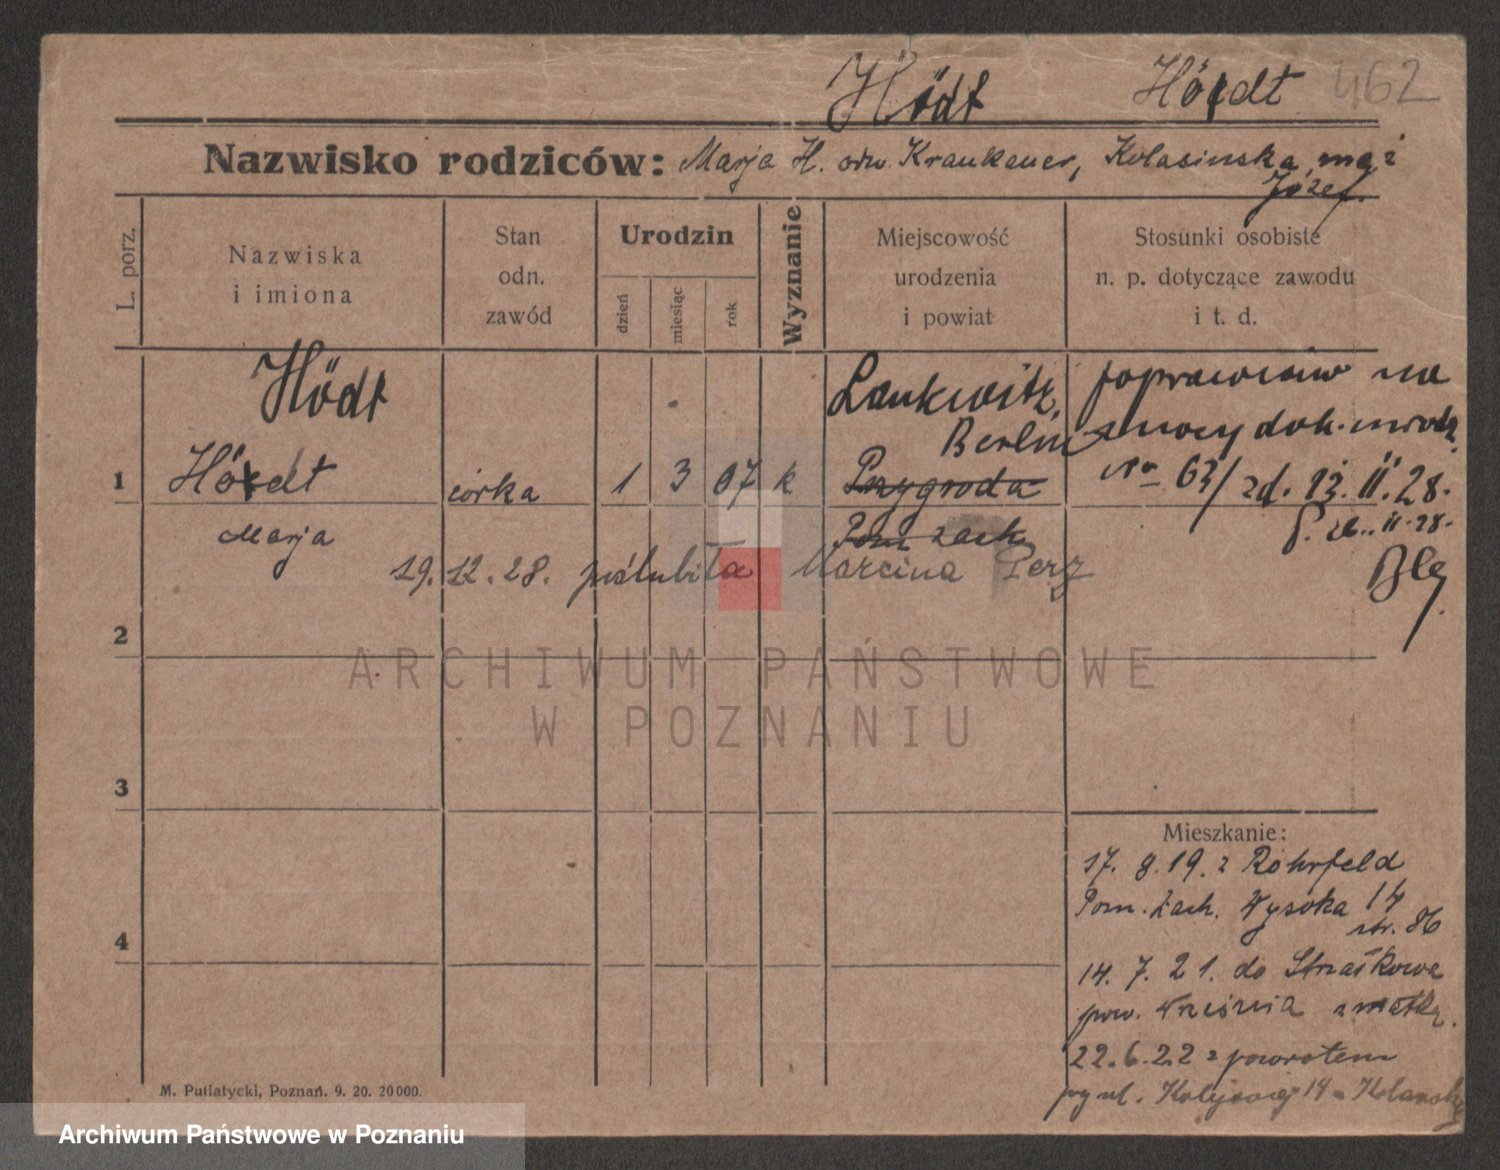 Hödt Hödt 462
Nazwisko rodziców: Marja H. odw. Kraukauer, Kolasinska, mąż
Józef.
L. porz.
Nazwiska
i imiona
Stan
odn.
zawód
Urodzin
dzień
miesiąc
rok
Wyznanie
Miejscowość
urodzenia
i powiat
Stosunki osobiste
n. p. dotyczące zawodu
i t. d.
Hödt
1 Hödt córka 1 3 07 k
Marja
Lankwitz,
Berlin
Przygroda
Pom zach
na
dok. urodz.
Nr 63/ zd. 13. II. 28.
P. 22. II. 28.
19. 12. 28. poślubiła Marcina Perz
2
3
4
ARCHIWUM PAŃSTWOWE
W POZNANIU
Mieszkanie:
17. 9. 19. z Rohrfeld
Pom. Zach. Wysoka 14
str. 86
14. 7. 21. do Strzałkowa
pow. Września z matką.
22. 6. 22 z powrotem
przy ul. Kolejowej 14 u
M. Putiatycki, Poznań. 9. 20. 20000.
Archiwum Państwowe w Poznaniu